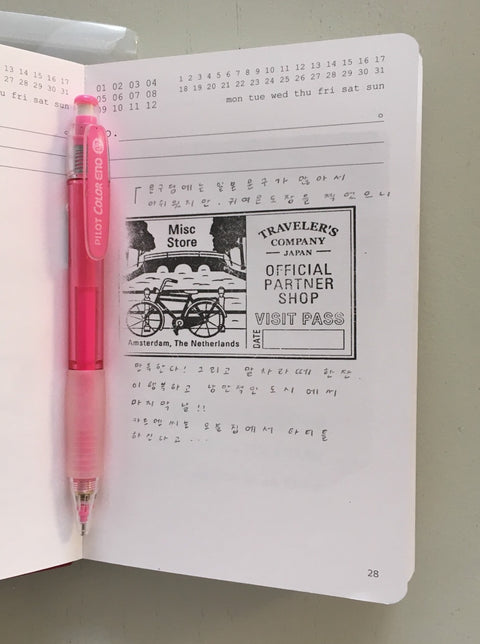 13 14 15 16 17
27 28 29 30 31
u fri sat sun
01 02 03 04
05 06 07 08
09 10 11 12
1 2 3 4 5 6 7 8 9 10 11 12 13 14 15 16 17
18 19 20 21 22 23 24 25 26 27 28 29 30 31
mon tue wed thu fri sat sun
PILOT COLOR ENO
「문구점에는 일본 문구가 많아서
아쉬웠지만. 귀여운 도장을 찍었으니
Misc
Store
Amsterdam, The Netherlands
TRAVELER'S
COMPANY
JAPAN
OFFICIAL
PARTNER
SHOP
VISIT PASS
DATE
만족한다! 그리고 말차라떼 한잔.
이 행복하고 낭만적인 도시에서
마지막 날!!
오늘 집에서 파티를
하신다고...
28